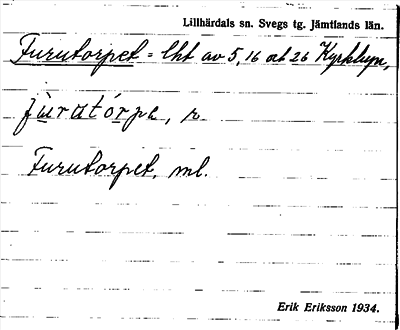 Lillhärdals sn. Svegs tg. Jämtlands län.
Furutorpet = lht av 5, 16 och 26 Kyrkbyn,
fùrutórpe, n.
Furutorpet, ml.
Erik Eriksson 1934.